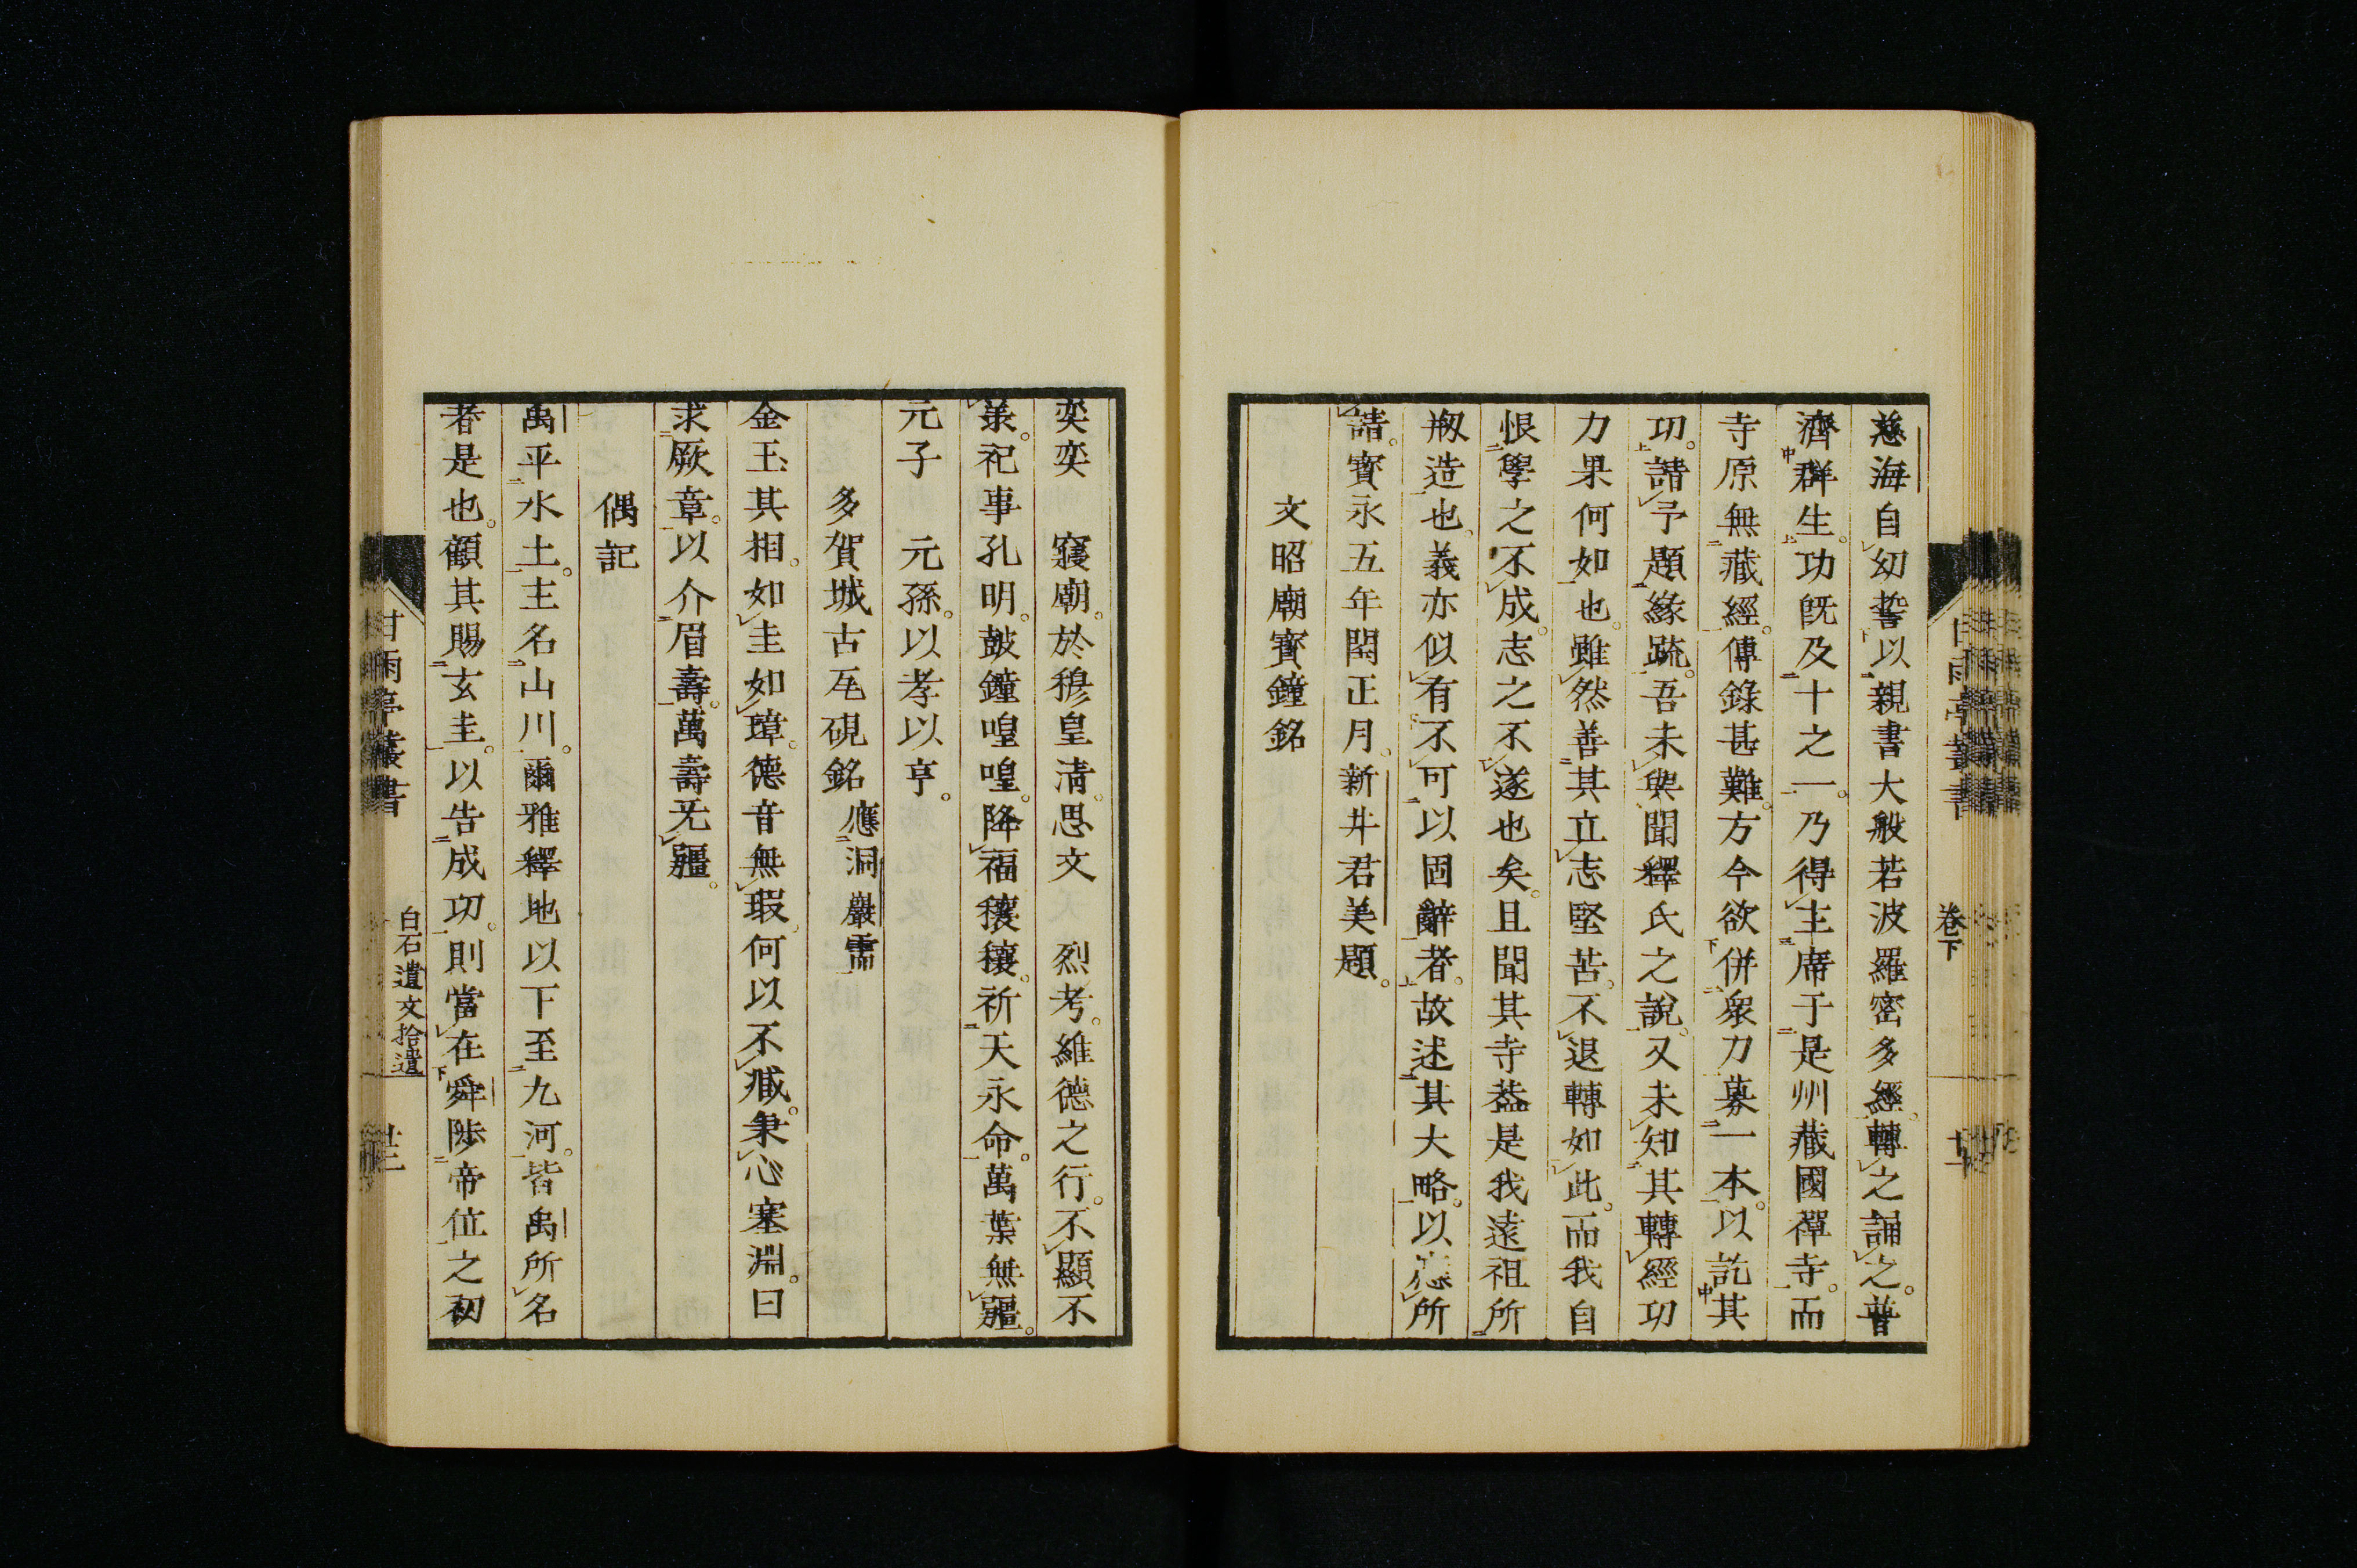 慈海自幼誓以親書大般若波羅密多經。轉之誦之。普
濟群生。功旣及十之一。乃得主席于是州藏國禪寺。而
寺原無藏經。傳錄甚難。方今欲併衆力募一本。以託其
功。請予題緣疏。吾未與聞釋氏之說。又未知其轉經功
力果何如也。雖然善其立志堅苦。不退轉如此。而我自
恨學之不成。志之不遂也矣。且聞其寺葢是我遠祖所
剏造也。義亦似有不可以固辭者。故述其大略。以應所
請。寳永五年閏正月。新井君美題。
文昭廟寳鐘銘
卷下
奕奕 寢廟。於穆皇淸。思文 烈考。維德之行。不顯不
承。祀事孔明。鼓鐘喤喤。降福穰穰。祈天永命。萬葉無疆。
元子 元孫。以孝以享。
多賀城古瓦硯銘 應洞巖需
金玉其相。如圭如璋。德音無瑕。何以不臧。秉心塞淵。曰
求厥章。以介眉壽。萬壽无疆。
偶記
禹平水土。主名山川。爾雅釋地以下至九河。皆禹所名
者是也。顧其賜玄圭。以告成功。則當在舜陟帝位之初
甘雨亭叢書
白石遺文拾遺